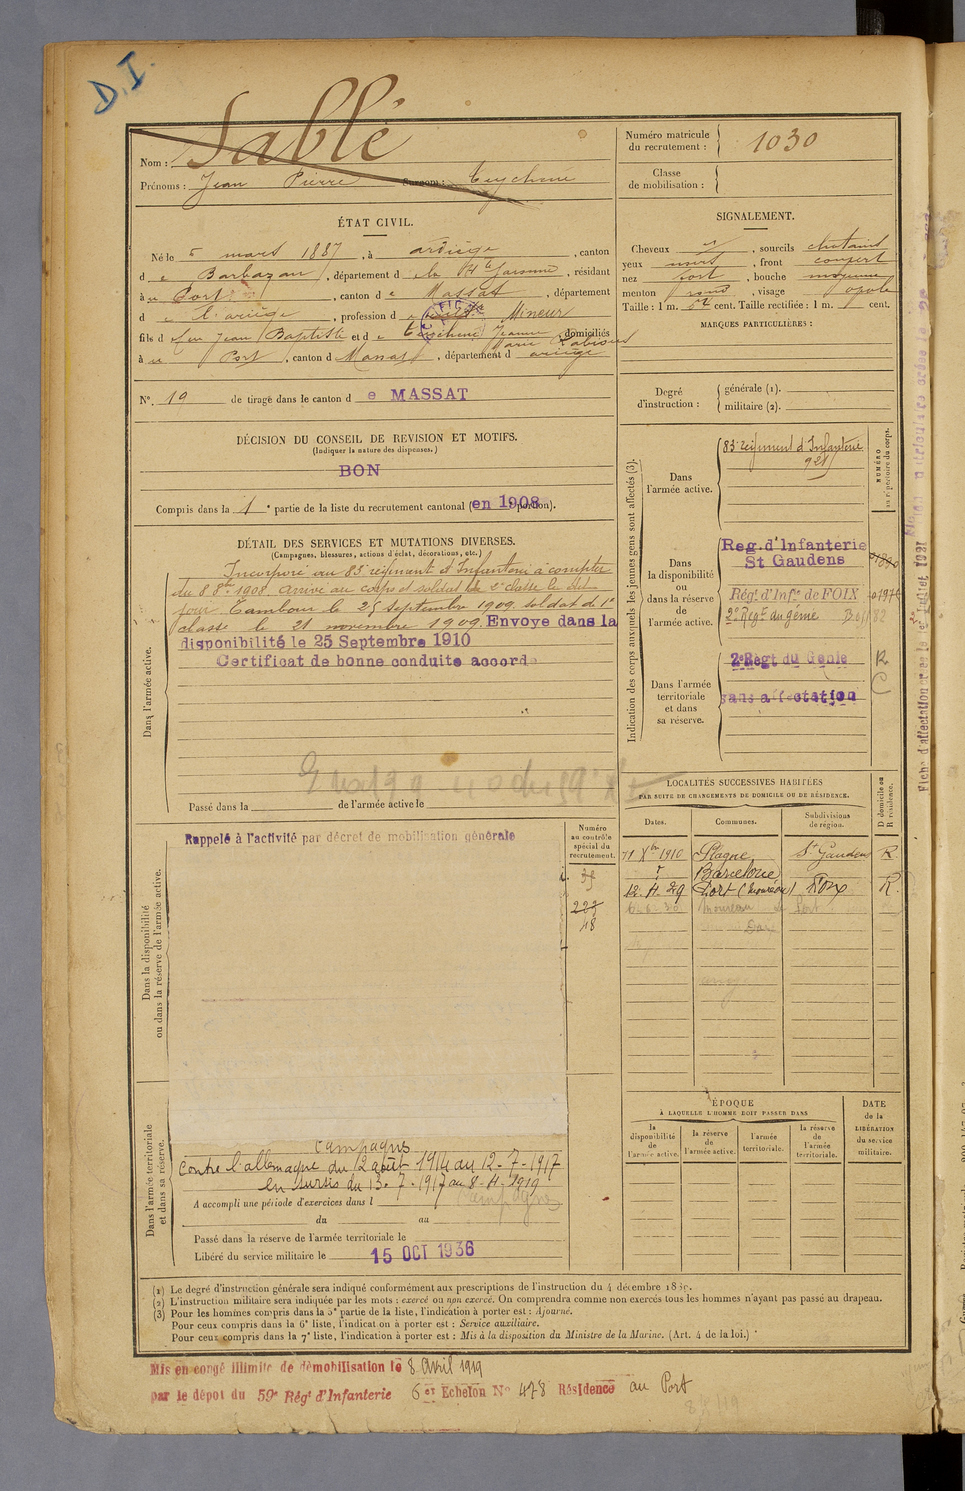 D.I.
Nom : Sablé
Prénoms : Jean Pierre Surnom : Teychene
Numéro matricule du recrutement : 1030
Classe de mobilisation :
ÉTAT CIVIL.
Né le 5 mars 1887, à ariège, canton
de Barbazan, département de la Hte Garonne, résidant
à au Port, canton de Massat, département
de l'ariège, profession de Mineur
fils de feu Jean Baptiste et de Teychene Jeanne Marie domiciliés
à au Port, canton de Massat, département d ariège
SIGNALEMENT.
Cheveux, sourcils chatains
yeux, front couvert
nez fort, bouche moyenne
menton rond, visage ovale
Taille : 1 m. cent. Taille rectifiée : 1 m. cent.
MARQUES PARTICULIÈRES :
N°. 19 de tirage dans le canton de MASSAT
Degré d'instruction : générale (1).
militaire (2).
DÉCISION DU CONSEIL DE REVISION ET MOTIFS.
(Indiquer la nature des dispenses.)
BON
Compris dans la 1e partie de la liste du recrutement cantonal (en 1908 portion).
DÉTAIL DES SERVICES ET MUTATIONS DIVERSES.
(Campagnes, blessures, actions d'éclat, décorations, etc.)
Dans l'armée active.
Incorporé au 83e régiment d'Infanterie à compter
du 8 8bre 1908. arrivé au corps et soldat de 2e classe le dit
jour. Tambour le 25 septembre 1909. soldat de 1e
classe le 21 novembre 1909. Envoyé dans la
disponibilité le 25 Septembre 1910
Certificat de bonne conduite accordé
Passé dans la de l'armée active le
Indication des corps auxquels les jeunes gens sont affectés (3).
NUMÉRO au répertoire du corps.
Dans l'armée active.
83e régiment d'Infanterie
921
Dans la disponibilité ou dans la réserve de l'armée active.
Reg. d'Infanterie
St Gaudens
Régt d'Infie de FOIX
2e Regt du génie
Dans l'armée territoriale et dans sa réserve.
2e Regt du Génie
R
C
sans affectation
Dans la disponibilité ou dans la réserve de l'armée active.
Rappelé à l'activité par décret de mobilisation générale
Numéro au contrôle spécial du recrutement.
223
48
LOCALITÉS SUCCESSIVES HABITÉES
PAR SUITE DE CHANGEMENTS DE DOMICILE OU DE RÉSIDENCE.
Dates. Communes. Subdivisions de région. D domicile ou R résidence.
Xbre 1910 Plagne St Gaudens R
Barcelone
12. 4. 29 Port (Moureau) Foix R.
6-6-30 Moureau Port
ÉPOQUE
À LAQUELLE L'HOMME DOIT PASSER DANS
la disponibilité de l'armée active.
la réserve de l'armée active.
l'armée territoriale.
la réserve de l'armée territoriale.
DATE de la LIBÉRATION du service militaire.
Dans l'armée territoriale et dans sa réserve.
Campagnes
Contre l'allemagne du 2 août 1914 au 12-7-1917
en sursis du 13-7-1917 au 8-4-1919
A accompli une période d'exercices dans l
du au
Passé dans la réserve de l'armée territoriale le
Libéré du service militaire le 15 OCT 1936
(1) Le degré d'instruction générale sera indiqué conformément aux prescriptions de l'instruction du 4 décembre 1889.
(2) L'instruction militaire sera indiquée par les mots : exercé ou non exercé. On comprendra comme non exercés tous les hommes n'ayant pas passé au drapeau.
(3) Pour les hommes compris dans la 5e partie de la liste, l'indication à porter est : Ajourné.
Pour ceux compris dans la 6e liste, l'indication à porter est : Service auxiliaire.
Pour ceux compris dans la 7e liste, l'indication à porter est : Mis à la disposition du Ministre de la Marine. (Art. 4 de la loi.)
Mis en congé illimité de démobilisation le 8 avril 1919
par le dépôt du 59e Régt d'Infanterie 6e Echelon N° 478 Résidence au Port